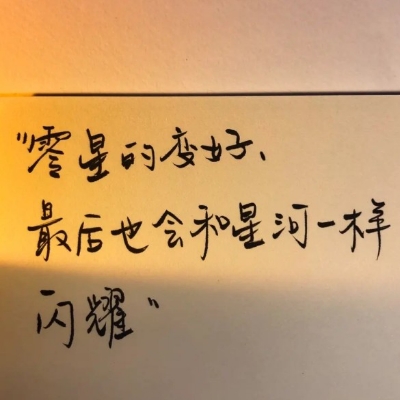 “零星的变好、
最后也会和星河一样
闪耀”